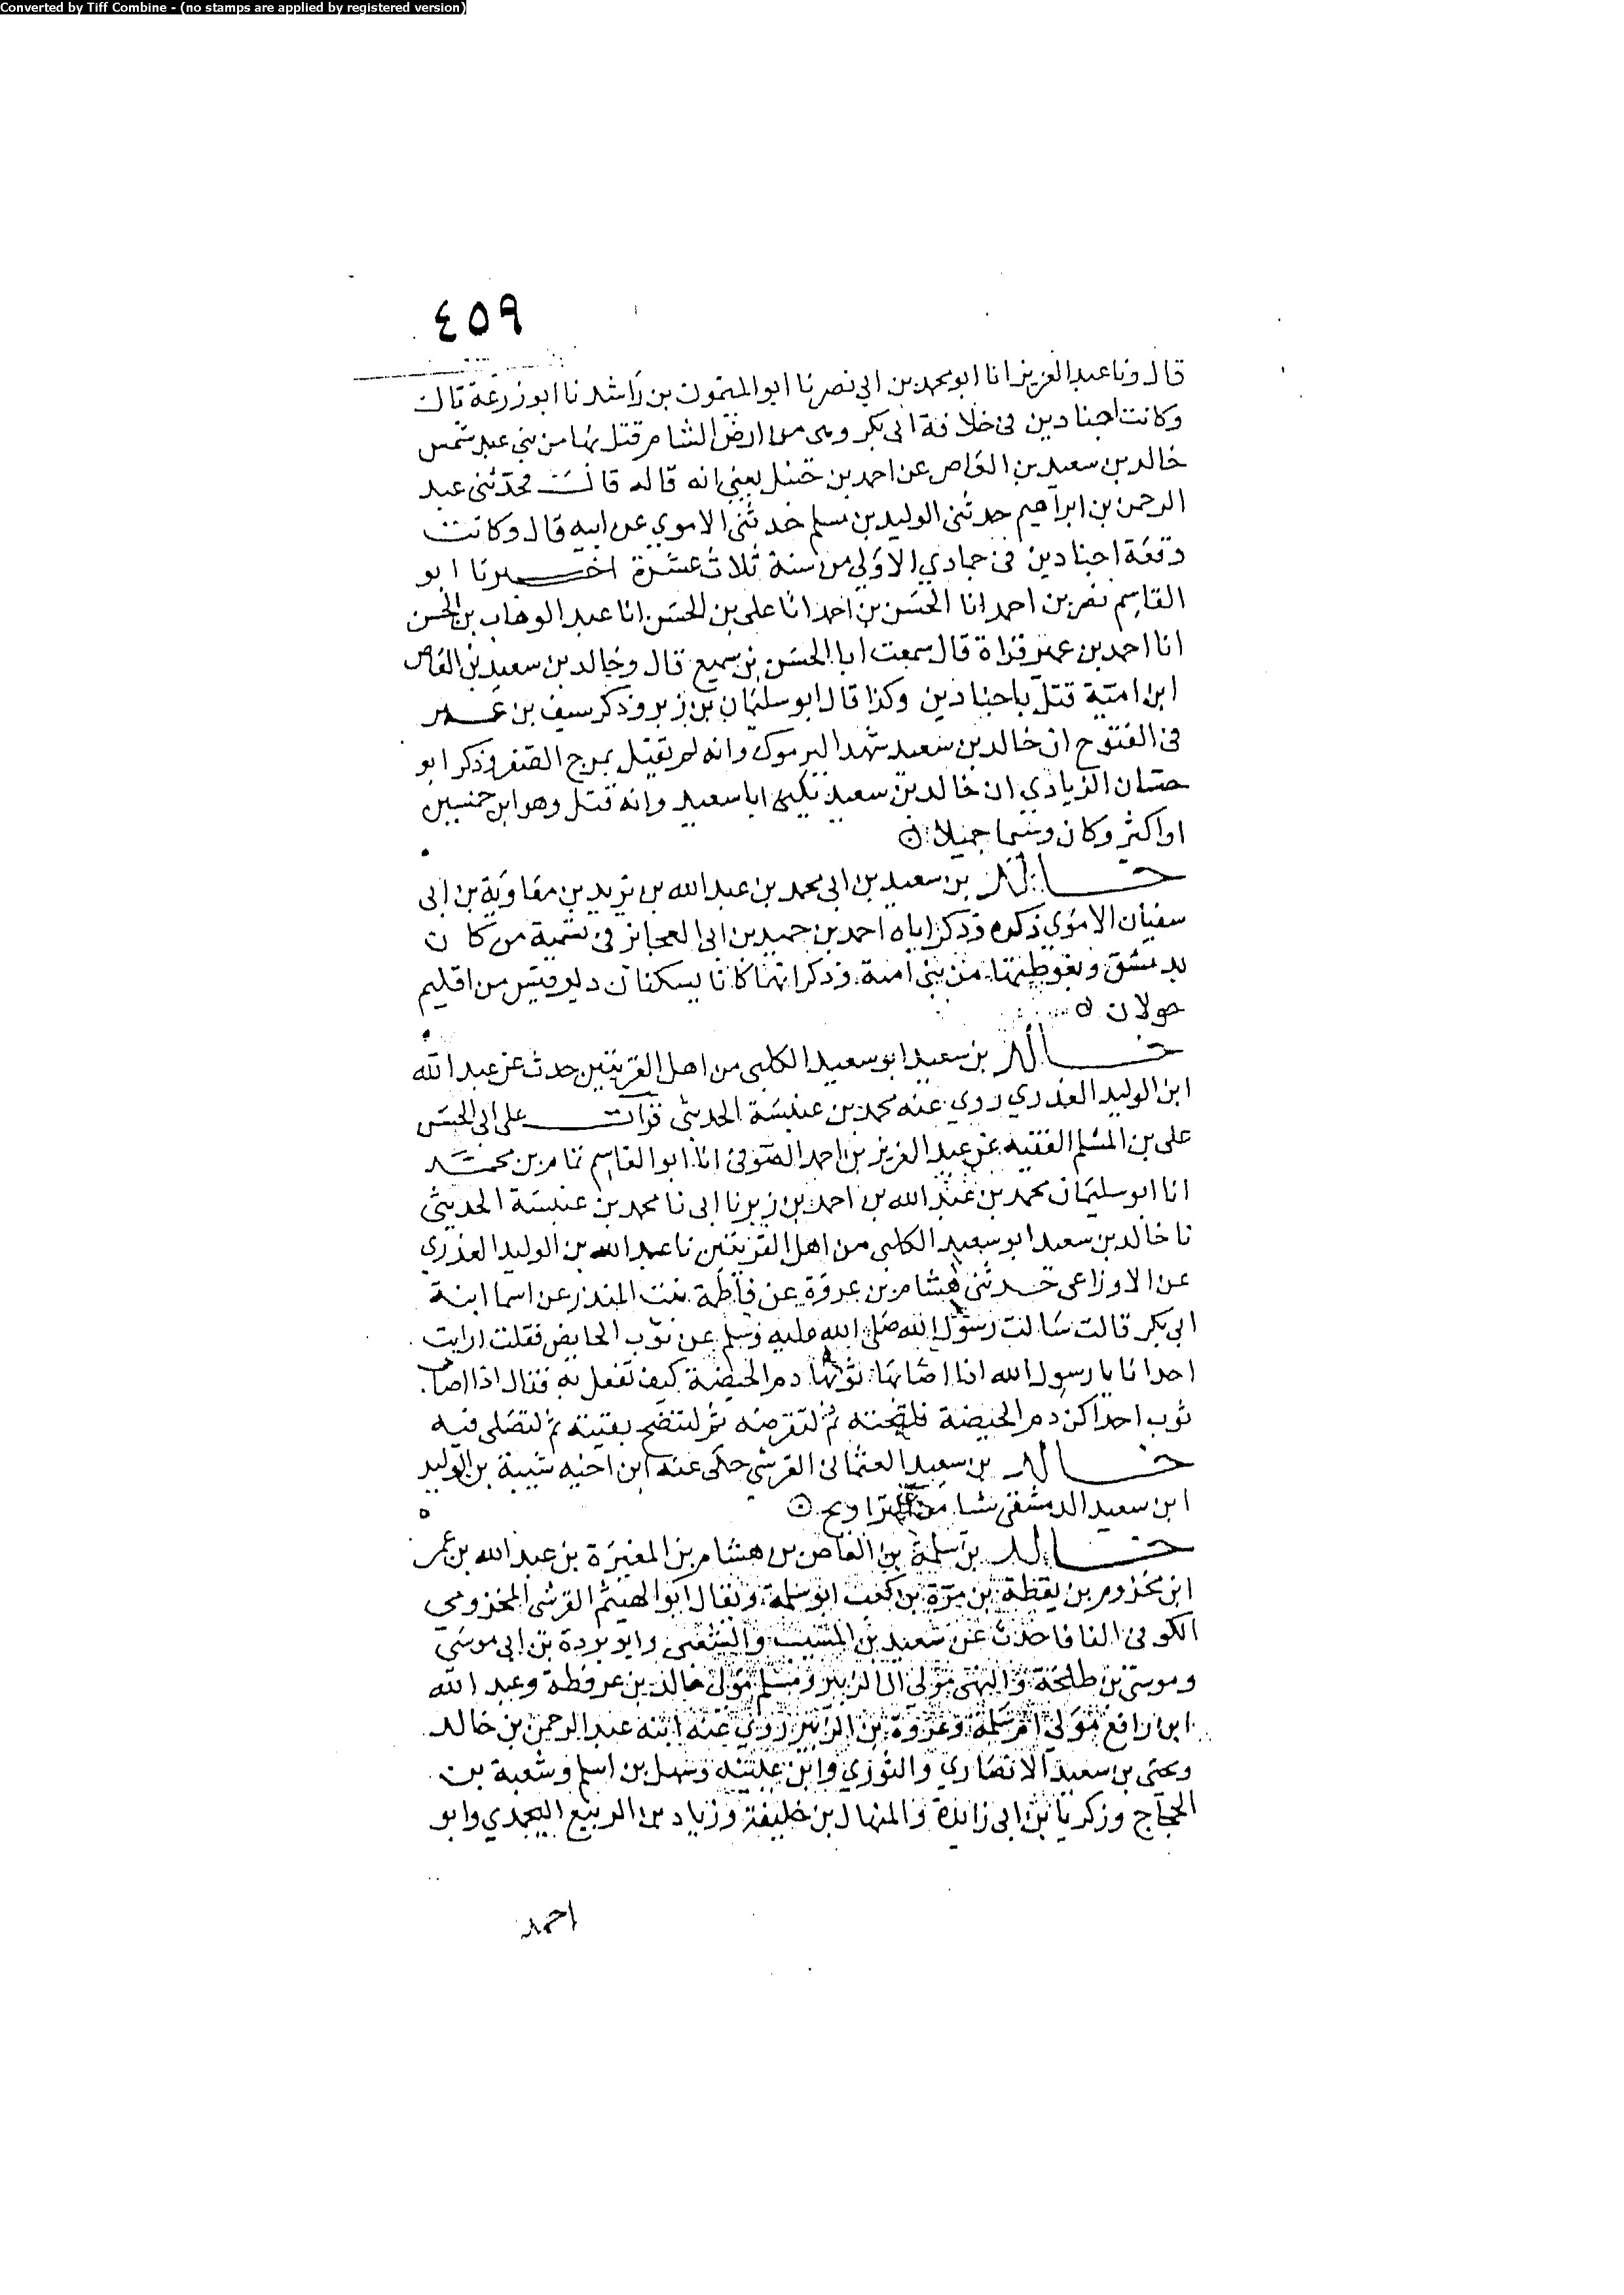 Converted by Tiff Combine - (no stamps are applied by registered version)
٤٥٩
قال ونا عبد العزيز انا ابو محمد بن ابي نصر نا ابو الميمون بن راشد نا ابو زرعة قال
وكانت اجنادين في خلافة ابي بكر وهي من ارض الشام قتل بها من بني عبد شمس
خالد بن سعيد بن العاص عن احمد بن حنبل يعني انه قاله قال فحدثني عبد
الرحمن بن ابراهيم حدثني الوليد بن مسلم حدثني الاموي عن ابيه قال وكانت
وقعة اجنادين في جمادي الاولى من سنة ثلاث عشرة اخبرنا ابو
القاسم نصر بن احمد انا الحسن بن احمد انا علي بن الحسن انا عبد الوهاب بن الحسن
انا احمد بن عمير قراة قال سمعت ابا الحسن بن سميع قال وخالد بن سعيد بن العاص
ابن امية قتل باجنادين وكذا قال ابو سليمان بن زبر وذكر سيف بن عمر
في الفتوح ان خالد بن سعيد شهد اليرموك وانه لم يقتل بمرج الصفر وذكر ابو
حسان الزيادي ان خالد بن سعيد يكنى ابا سعيد وانه قتل وهو ابن خمسين
او اكثر وكان وسيما جميلا
خالد بن سعيد بن ابي محمد بن عبد الله بن يزيد بن معاوية بن ابي
سفيان الاموي ذكره وذكر اباه احمد بن حميد بن ابي العجائز في تسمية من كان
بدمشق وبغوطتها من بني امية وذكر انهما كانا يسكنان دير قيس من اقليم
خولان
خالد بن سعيد ابو سعيد الكلبي من اهل القريتين حدث عن عبد الله
ابن الوليد العذري روى عنه محمد بن عنبسة الحديثي قرات على ابي الحسن
علي بن المسلم الفقيه عن عبد العزيز بن احمد الصوفي انا ابو القاسم تمام بن محمد
انا ابو سليمان محمد بن عبد الله بن احمد بن زبر نا ابي نا محمد بن عنبسة الحديثي
نا خالد بن سعيد ابو سعيد الكلبي من اهل القريتين نا عبد الله بن الوليد العذري
عن الاوزاعي حدثني هشام بن عروة عن فاطمة بنت المنذر عن اسما ابنة
ابي بكر قالت سالت رسول الله صلى الله عليه وسلم عن ثوب الحايض فقلت ارايت
احدانا يا رسول الله اذا اصابها ثوبها دم الحيضة كيف تفعل به فقال اذا اصاب
ثوب احداكن دم الحيضة فلتحته ثم لتقرصه ثم لتنضح بقيته ثم لتصلي فيه
خالد بن سعيد العثماني القرشي حكى عنه ابن اخيه شيبة بن الوليد
ابن سعيد الدمشقي
خالد بن سلمة بن العاص بن هشام بن المغيرة بن عبد الله بن عمر
ابن مخزوم بن يقظة بن مرة بن كعب ابو سلمة ويقال ابو الهيثم القرشي المخزومي
الكوفي الفافا حدث عن سعيد بن المسيب والشعبي وابو بردة بن ابي موسى
وموسى بن طلحة والبهي مولى ال الزبير ومسلم مولى خالد بن عرفطة وعبد الله
ابن رافع مولى ام سلمة وعروة بن الزبير روى عنه ابنه عبد الرحمن بن خالد
ويحيى بن سعيد الانصاري والثوري وابن عيينه وسهل بن اسلم وشعبة بن
الحجاج وزكريا بن ابي زائدة والمنهال بن خليفة وزياد بن الربيع اليحمدي وابو
احمد